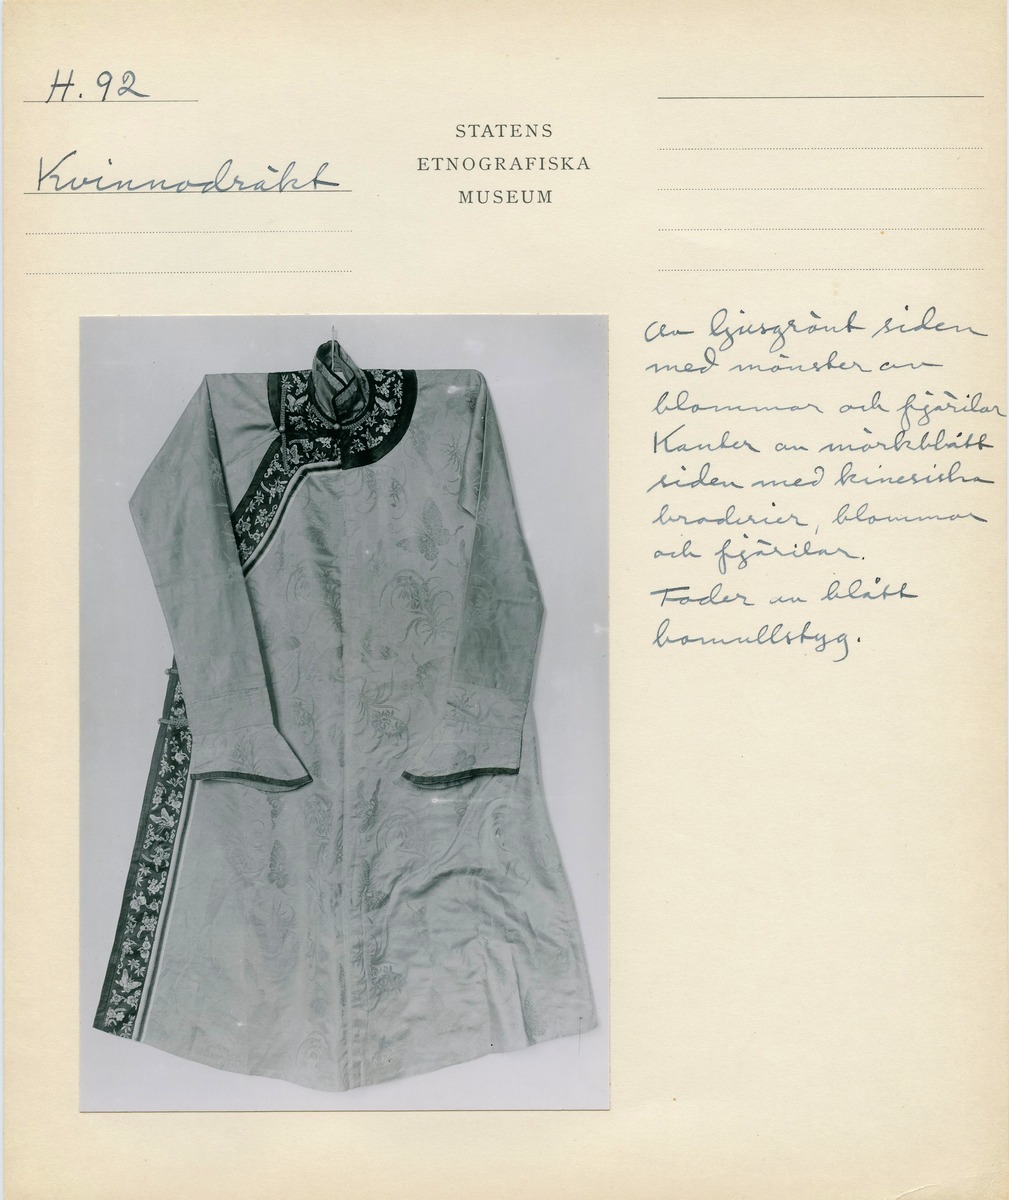 H. 92
STATENS
ETNOGRAFISKA
MUSEUM
Kvinnodräkt
av ljusgrönt siden
med mönster av
blommor och fjärilar
Kanter av mörkblått
siden med kinesiska
broderier, blommor
och fjärilar.
Foder av blått
bomullstyg.